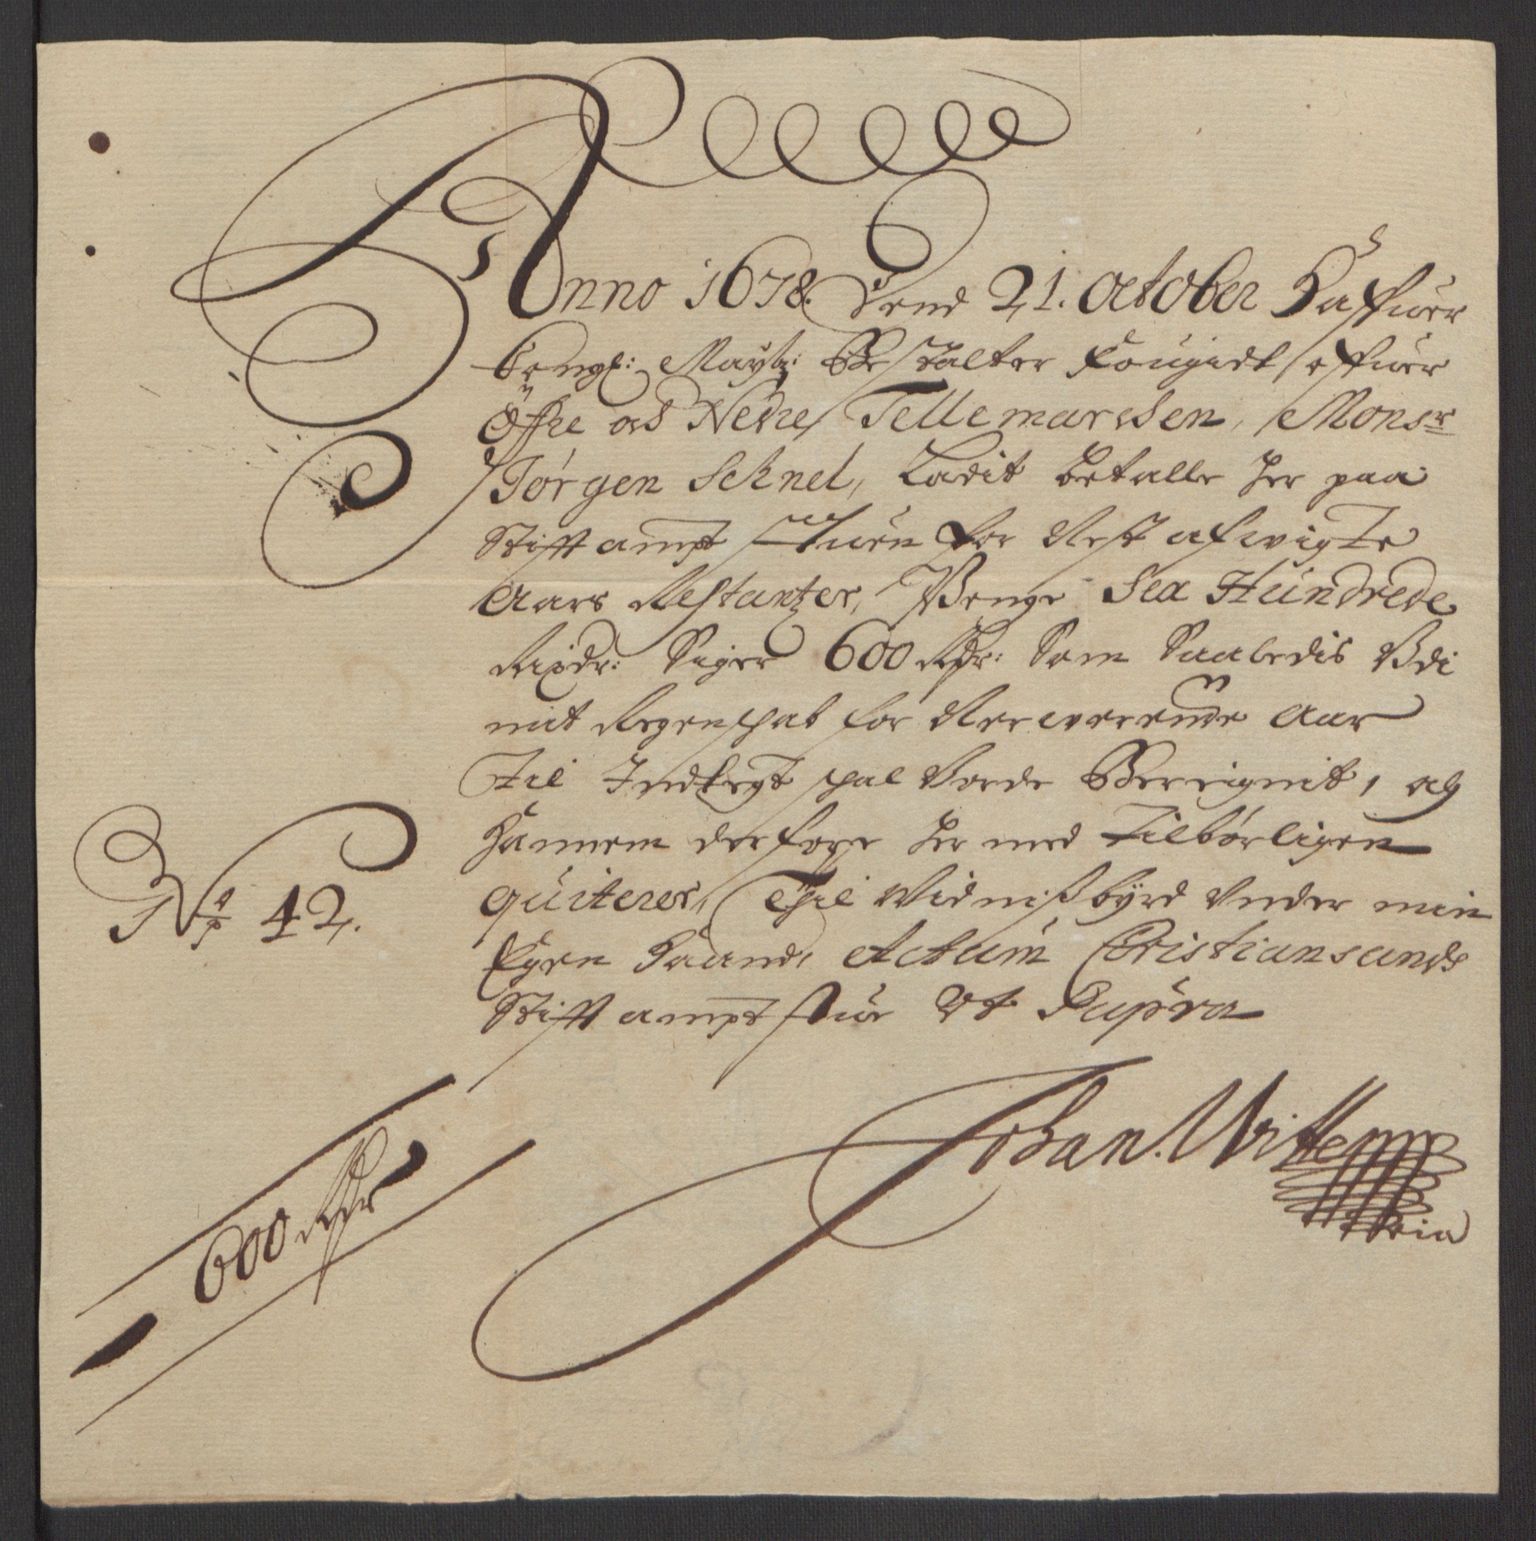 Anno 1678. Dend 21. October Haffuer
Kongl: Mayts: Bestalter Fougidt offuer
Öfre od Nedre Tellemarcken, Monsr
Jörgen Schnel, Ladit betalle her paa
Stifft ampt stuen for Rest afwigte
Aars Restantzer, Penge Sex Hundrede
Rixdr: Siger 600 Rdr: Som Saaledis Vdi
mit Regenskab for Neerwerende Aar
Til Indtegt skal Vorde Beregnit, og
Hannem derfore her med Tilbørligen
quiterer, Thil Vidnisbyrd Vnder min
Egen Haand, Actum Christiansands
Stifft ampt stue Ut Supra
No 42.
Johan. Witten
600 Rdr